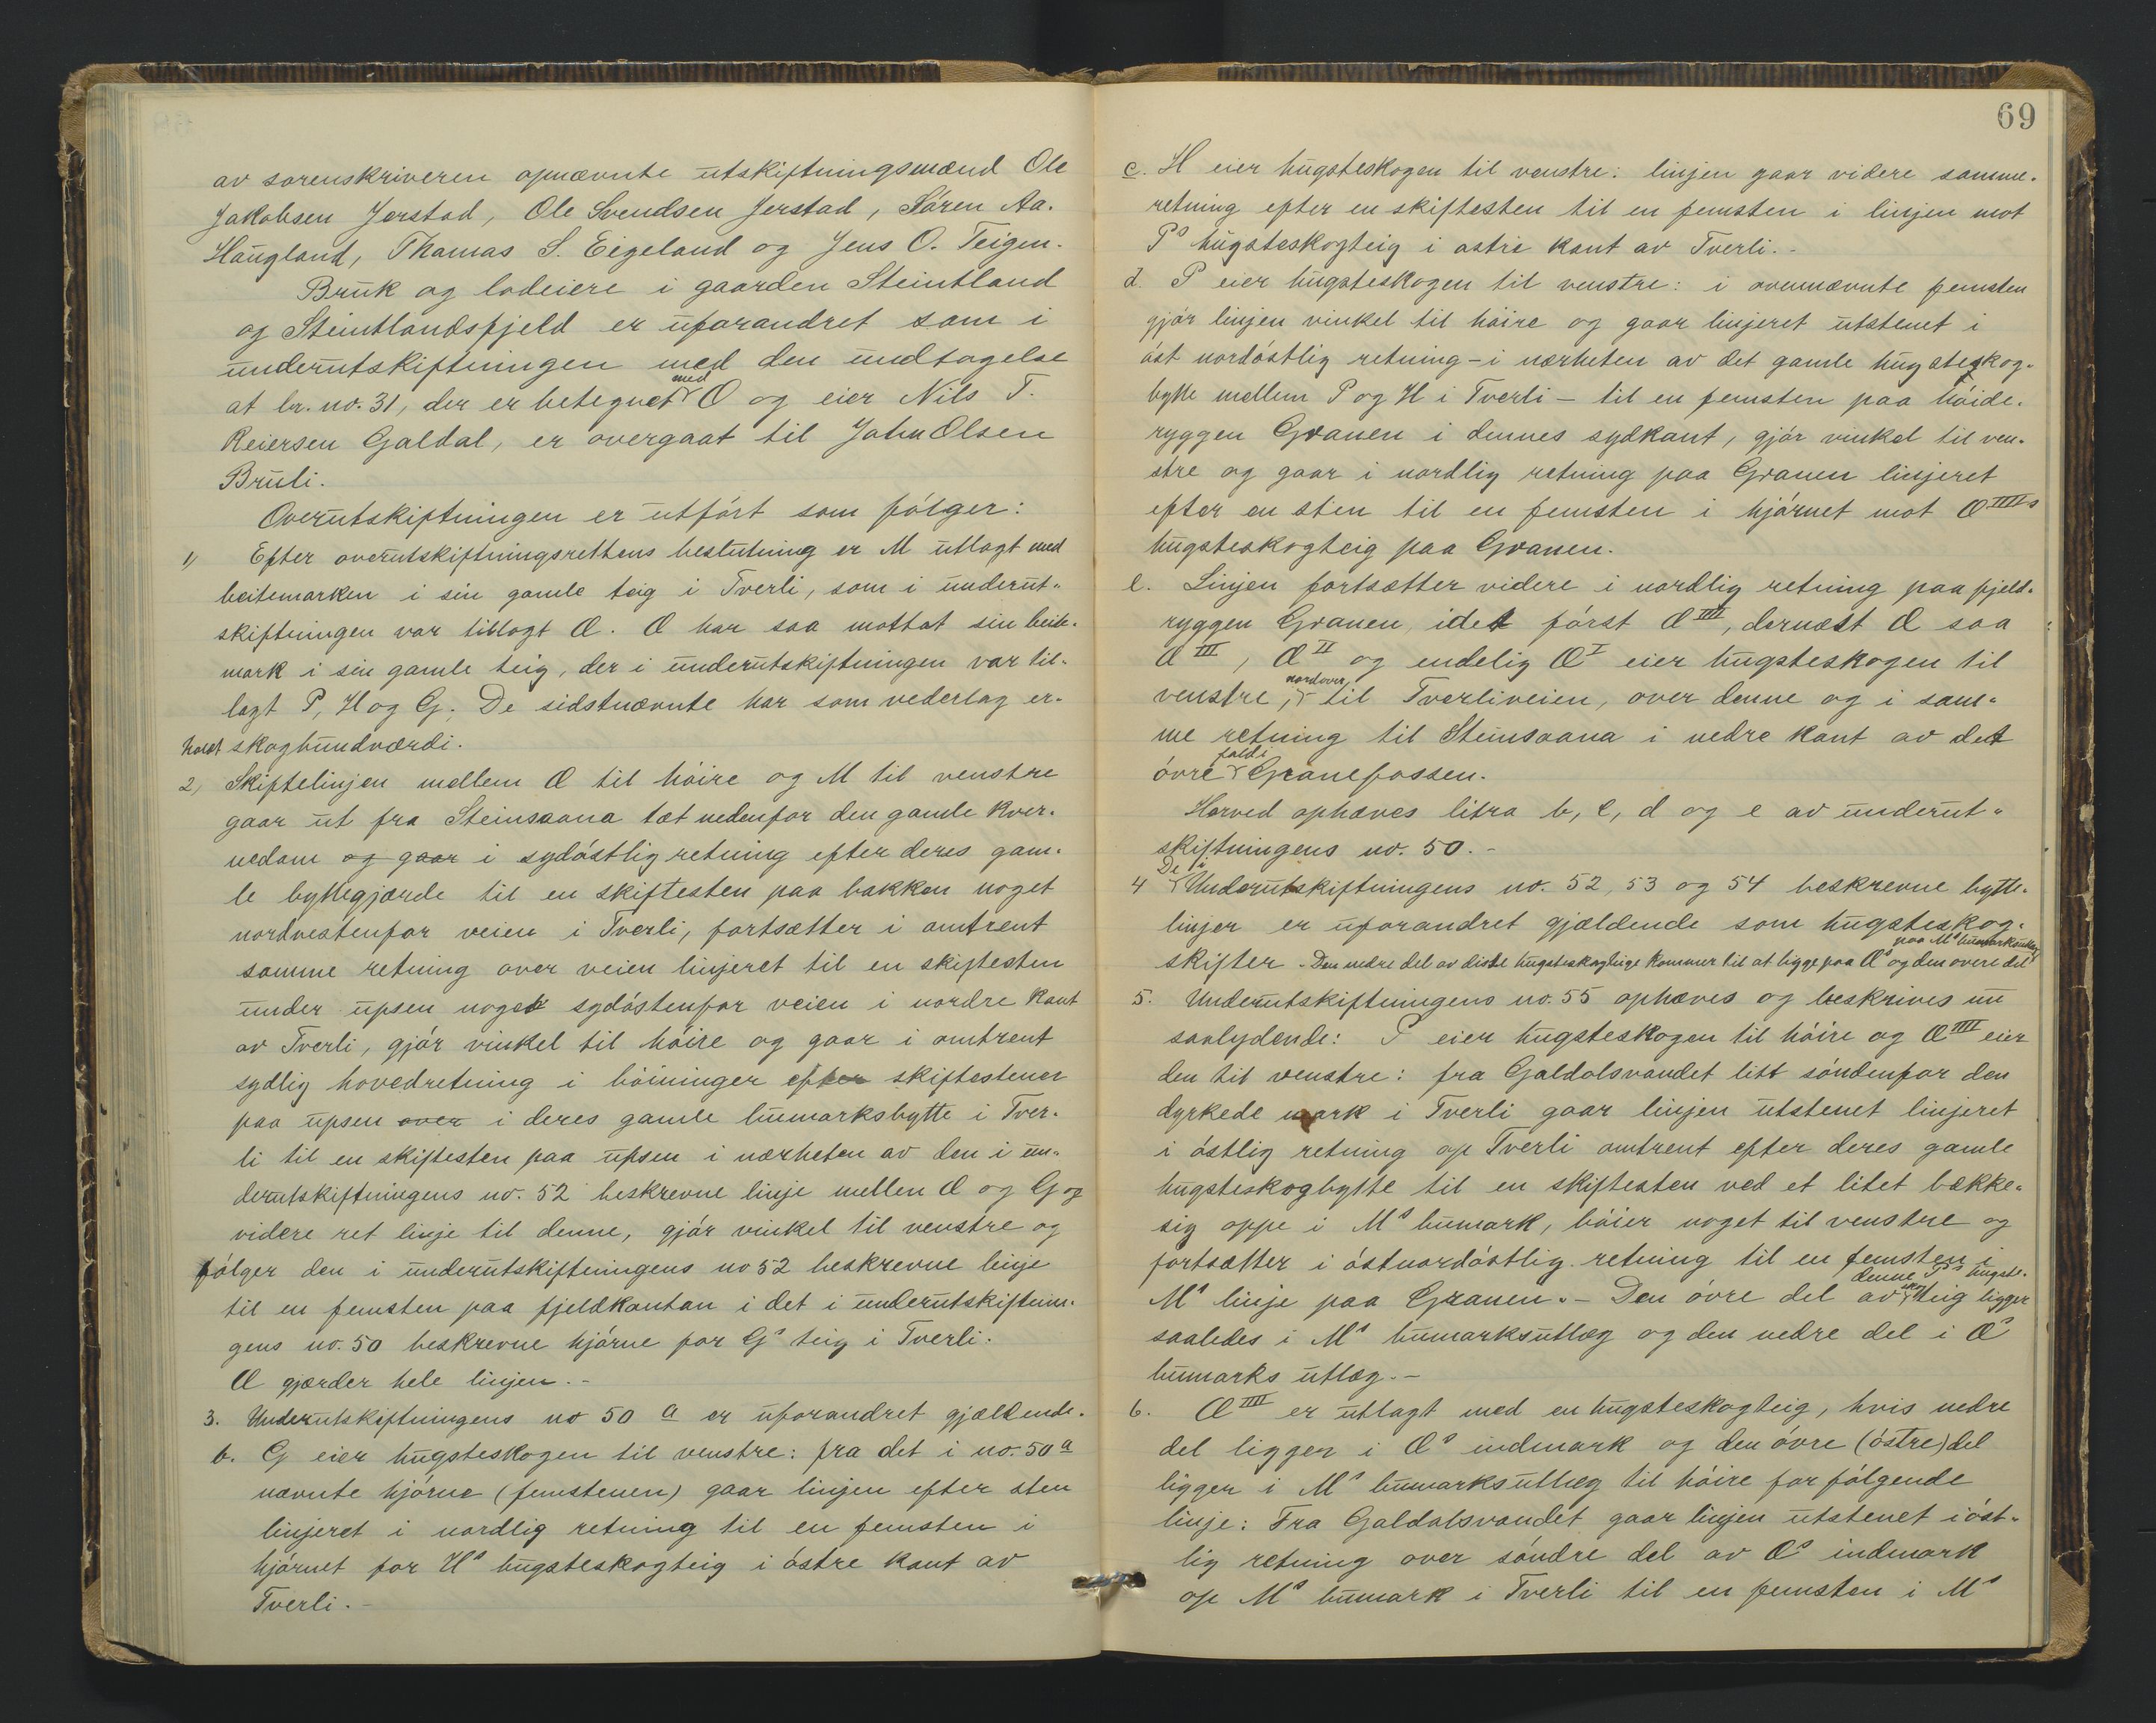 av sorenskriveren opnævnte utskiftningsmænd Ole
Jakobsen Jerstad, Ole Svendsen Jerstad, Sóren Aa.
Haugland, Thomas S. Eigeland og Jens O. Teigen.
Bruk og lodeiere i gaarden Steintland
og Steintlandsfjeld er uforandret som i
underutskiftningen med den undtagelse
at br. no. 31, der er betegnet med O og eier Nils T.
Reiersen Galdal, er overgaat til John Olsen
Bruli.
Overutskiftningen er utfórt som fólger:
1) Efter overutskiftningsrettens beslutning er M utlagt med
beitemarken i sin gamle teig i Tverli, som i underut-
skiftningen var tillagt Æ. Æ har saa mottat sin beite-
mark i sin gamle teig, der i underutskiftningen var til-
lagt P, H og G. De sidstnævnte har som vederlag er-
holdt skogbundværdi.
2) Skiftelinjen mellem Æ til hóire og M til venstre
gaar ut fra Steinsaana tæt nedenfor den gamle kver-
nedam og gaar i sydóstlig retning efter deres gam-
le byttegjærde til en skiftesten paa bakken noget
nordvestenfor veien i Tverli, fortsætter i omtrent
samme retning over veien linjeret til en skiftesten
under upsen noget sydóstenfor veien i nordre kant
av Tverli, gjór vinkel til hóire og gaar i omtrent
sydlig hovedretning i bóininger efter skiftestener
paa upsen over i deres gamle bumarksbytte i Tver-
li til en skiftesten paa upsen i nærheten av den i un-
derutskiftningens no. 52 beskrevne linje mellem Æ og G og
videre ret linje til denne, gjór vinkel til venstre og
fólger den i underutskiftningens no 52 beskrevne linje
til en femsten paa fjeldkanten i det i underutskiftnin-
gens no. 50 beskrevne hjórne for G's teig i Tverli.
Æ gjærder hele linjen.-
3. Underutskiftningens no 50 a er uforandret gjældende.
b. G eier hugsteskogen til venstre: fra det i no. 50 a
nævnte hjórne (femstenen) gaar linjen efter sten
linjeret i nordlig retning til en femsten i
hjórnet for H's hugsteskogteig i óstre kant av
Tverli.-
69
c. H eier hugsteskogen til venstre: linjen gaar videre samme
retning efter en skiftesten til en femsten i linjen mot
P's hugsteskogteig i óstre kant av Tverli.-
d. P eier hugsteskogen til venstre: i ovennævnte femsten
gjór linjen vinkel til hóire og gaar linjeret utstenet i
óst nordóstlig retning - i nærheten av det gamle hugsteskog-
bytte mellem P og H i Tverli - til en femsten paa hóide-
ryggen Granen i dennes sydkant, gjór vinkel til ven-
stre og gaar i nordlig retning paa Granen linjeret
efter en sten til en femsten i hjórnet mot Æ IIII's
hugsteskogteig paa Granen.
e. Linjen fortsætter videre i nordlig retning paa fjeld-
ryggen Granen, idet fórst Æ IIII, dernæst Æ saa
Æ III, Æ II og endelig Æ I eier hugsteskogen til
venstre, nordover til Tverliveien, over denne og i sam-
me retning til Steinsaana i nedre kant av det
óvre fald i Granefossen.
Herved ophæves litra b, c, d og e av underut-
skiftningens no. 50.-
4 De i Underutskiftningens no. 52, 53 og 54 beskrevne bytte-
linjer er uforandret gjældende som hugsteskog-
skifter. Den nedre del av disse hugsteskogteige kommer til at ligge paa Æ's og den óvere del paa M's bumarksutlæg
5. Underutskiftningens no. 55 ophæves og beskrives nu
saalydende: P eier hugsteskogen til hóire og Æ IIII eier
den til venstre: fra Galdalsvandet litt sóndenfor den
dyrkede mark i Tverli gaar linjen utstenet linjeret
i óstlig retning op Tverli omtrent efter deres gamle
hugsteskogbytte til en skiftesten ved et litet bække-
sig oppe i M's bumark, bóier noget til venstre og
fortsætter i óstnordóstlig retning til en femsten i
M's linje paa Granen.- Den óvre del av denne P's hugste-skog teig ligger
saaledes i M's bumarksutlæg og den nedre del i Æ's
bumarks utlæg.-
6. Æ IIII er utlagt med en hugsteskogteig, hvis nedre
del ligger i Æ's indmark og den óvre (óstre) del
ligger i M's bumarksutlæg til hóire for fólgende
linje: Fra Galdalsvandet gaar linjen utstenet i óst-
lig retning over sóndre del av Æ's indmark
op M's bumark i Tverli til en femsten i M's